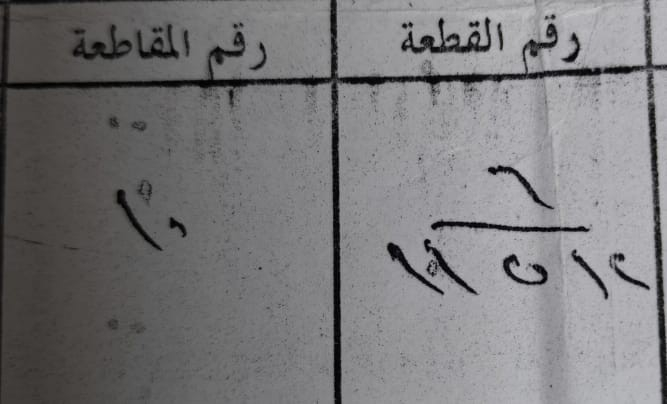 رقم القطعة
رقم المقاطعة
٦
١٠